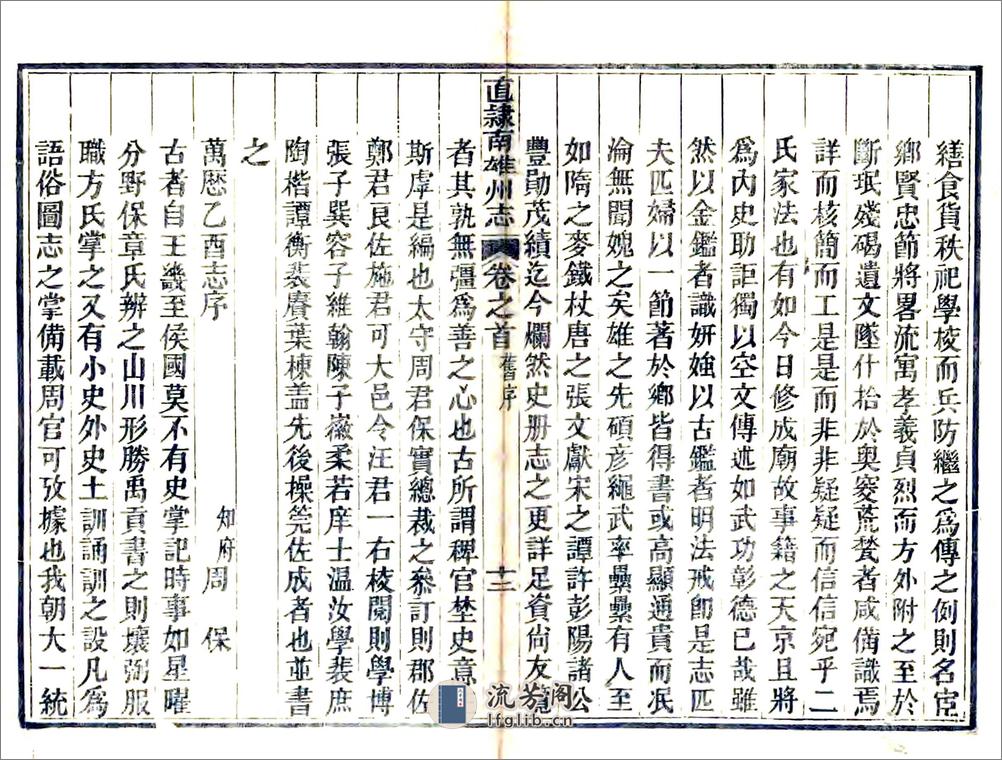 繕食貨秩祀學校而兵防繼之爲傳之例則名宦
鄉賢忠節將畧流寓孝義貞烈而方外附之至於
斷珉殘碣遺文墜什拾於奥窔荒榛者咸備識焉
詳而核簡而工是是而非非疑疑而信信宛乎二
氏家法也有如今日修成廟故事籍之天京且將
爲內史助詎獨以空文傳述如武功彰德已哉雖
然以金鑑者識妍媸以古鑑者明法戒卽是志匹
夫匹婦以一節著於鄉皆得書或高顯通貴而泯
淪無聞媿之矣雄之先碩彥繩武率纍纍有人至
如隋之麥鐵杖唐之張文獻宋之譚許彭陽諸公
豐勛茂績迄今爛然史册志之更詳足資尙友覽
直隸南雄州志 卷之首 舊序 十三
者其孰無彊爲善之心也古所謂稗官埜史意
斯虖是編也太守周君保實總裁之叅訂則郡佐
鄭君良佐施君可大邑令汪君一右校閱則學博
張子巽容子維翰陳子嶶柔若庠士温汝學裴庶
陶楷譚衡裴賡葉棟盖先後操筦佐成者也並書
之
萬厯乙酉志序
知府周保
古者自王畿至侯國莫不有史掌記時事如星曜
分野保章氏辨之山川形勝禹貢書之則壤弼服
職方氏掌之又有小史外史土訓誦訓之設凡爲
語俗圖志之掌備載周官可攷據也我朝大一統
流芳阁
lfglib.cn